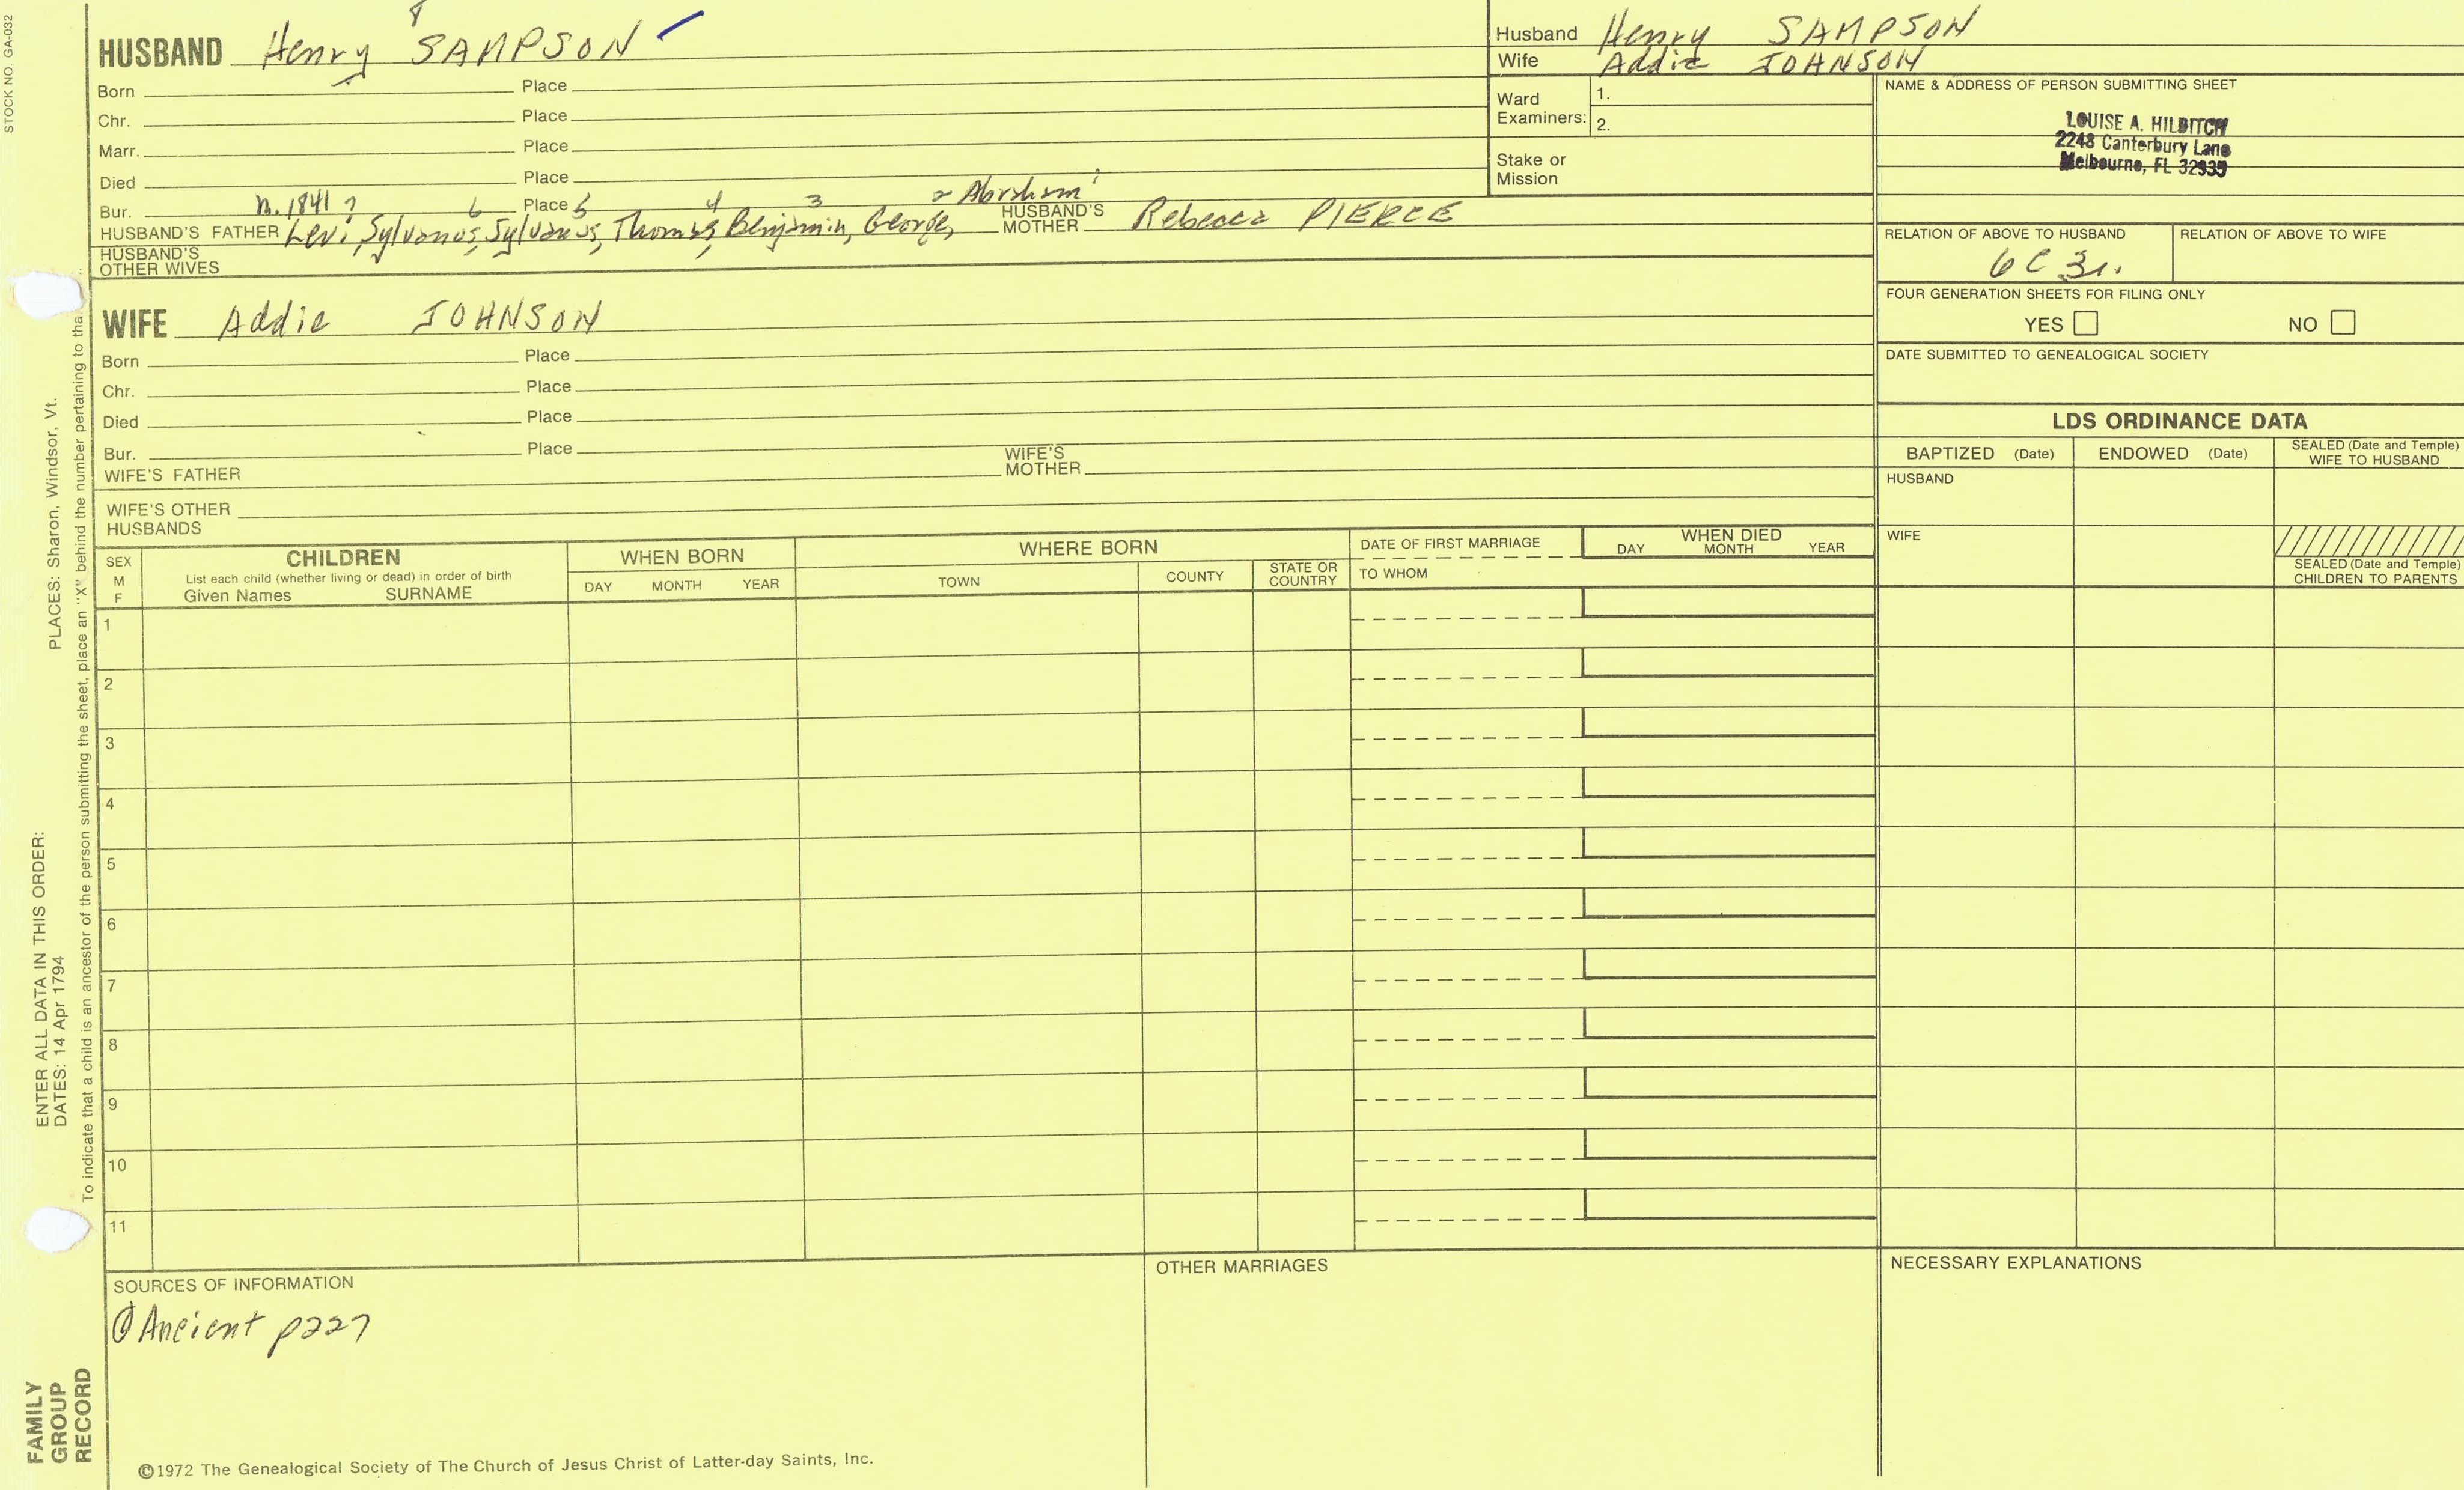 STOCK NO. GA-032
8
HUSBAND Henry SAMPSON
Born Place
Chr. Place
Marr. Place
Died Place
Bur. m. 1841 7 6 Place 5 4 3 2 Abraham 1
HUSBAND'S FATHER Levi, Sylvanus, Sylvanus, Thomas, Benjamin, George, HUSBAND'S MOTHER Rebecca PIERCE
HUSBAND'S OTHER WIVES
Husband Henry SAMPSON
Wife Addie JOHNSON
Ward Examiners: 1.
2.
Stake or Mission
NAME & ADDRESS OF PERSON SUBMITTING SHEET
LOUISE A. HILBITCH
2248 Canterbury Lane
Melbourne, FL 32935
RELATION OF ABOVE TO HUSBAND RELATION OF ABOVE TO WIFE
6C 3r.
FOUR GENERATION SHEETS FOR FILING ONLY
YES NO
DATE SUBMITTED TO GENEALOGICAL SOCIETY
WIFE Addie JOHNSON
Born Place
Chr. Place
Died Place
Bur. Place
WIFE'S FATHER WIFE'S MOTHER
WIFE'S OTHER HUSBANDS
LDS ORDINANCE DATA
BAPTIZED (Date) ENDOWED (Date) SEALED (Date and Temple) WIFE TO HUSBAND
HUSBAND
WIFE
SEALED (Date and Temple) CHILDREN TO PARENTS
SEX M F
CHILDREN
List each child (whether living or dead) in order of birth
Given Names SURNAME
WHEN BORN
DAY MONTH YEAR
WHERE BORN
TOWN COUNTY STATE OR COUNTRY
DATE OF FIRST MARRIAGE
TO WHOM
WHEN DIED
DAY MONTH YEAR
1
2
3
4
5
6
7
8
9
10
11
SOURCES OF INFORMATION
① Ancient p227
OTHER MARRIAGES
NECESSARY EXPLANATIONS
©1972 The Genealogical Society of The Church of Jesus Christ of Latter-day Saints, Inc.
FAMILY GROUP RECORD
ENTER ALL DATA IN THIS ORDER:
DATES: 14 Apr 1794
PLACES: Sharon, Windsor, Vt.
To indicate that a child is an ancestor of the person submitting the sheet, place an "X" behind the number pertaining to tha